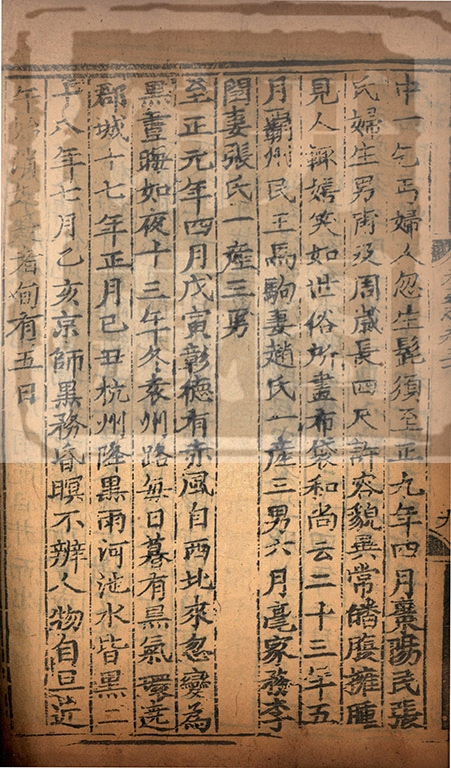 中一乞丐婦人忽生髭須至正九年四月襄陽民張
氏婦生男甫及周歲長四尺許容貌異常皤腹擁腫
見人輒嬉笑如世俗所畫布袋和尚云二十三年五
月霸州民王馬駒妻趙氏一產三男六月亳家務李
閏妻張氏一產三男
至正元年四月戊寅彰德有赤風自西北來忽變為
黑晝晦如夜十三年冬袁州路每日暮有黑氣環遶
郡城十七年正月己丑杭州降黑雨河池水皆黑二
十八年七月乙亥京師黑務昏暝不辨人物自旦近
午始消如是者旬有五日